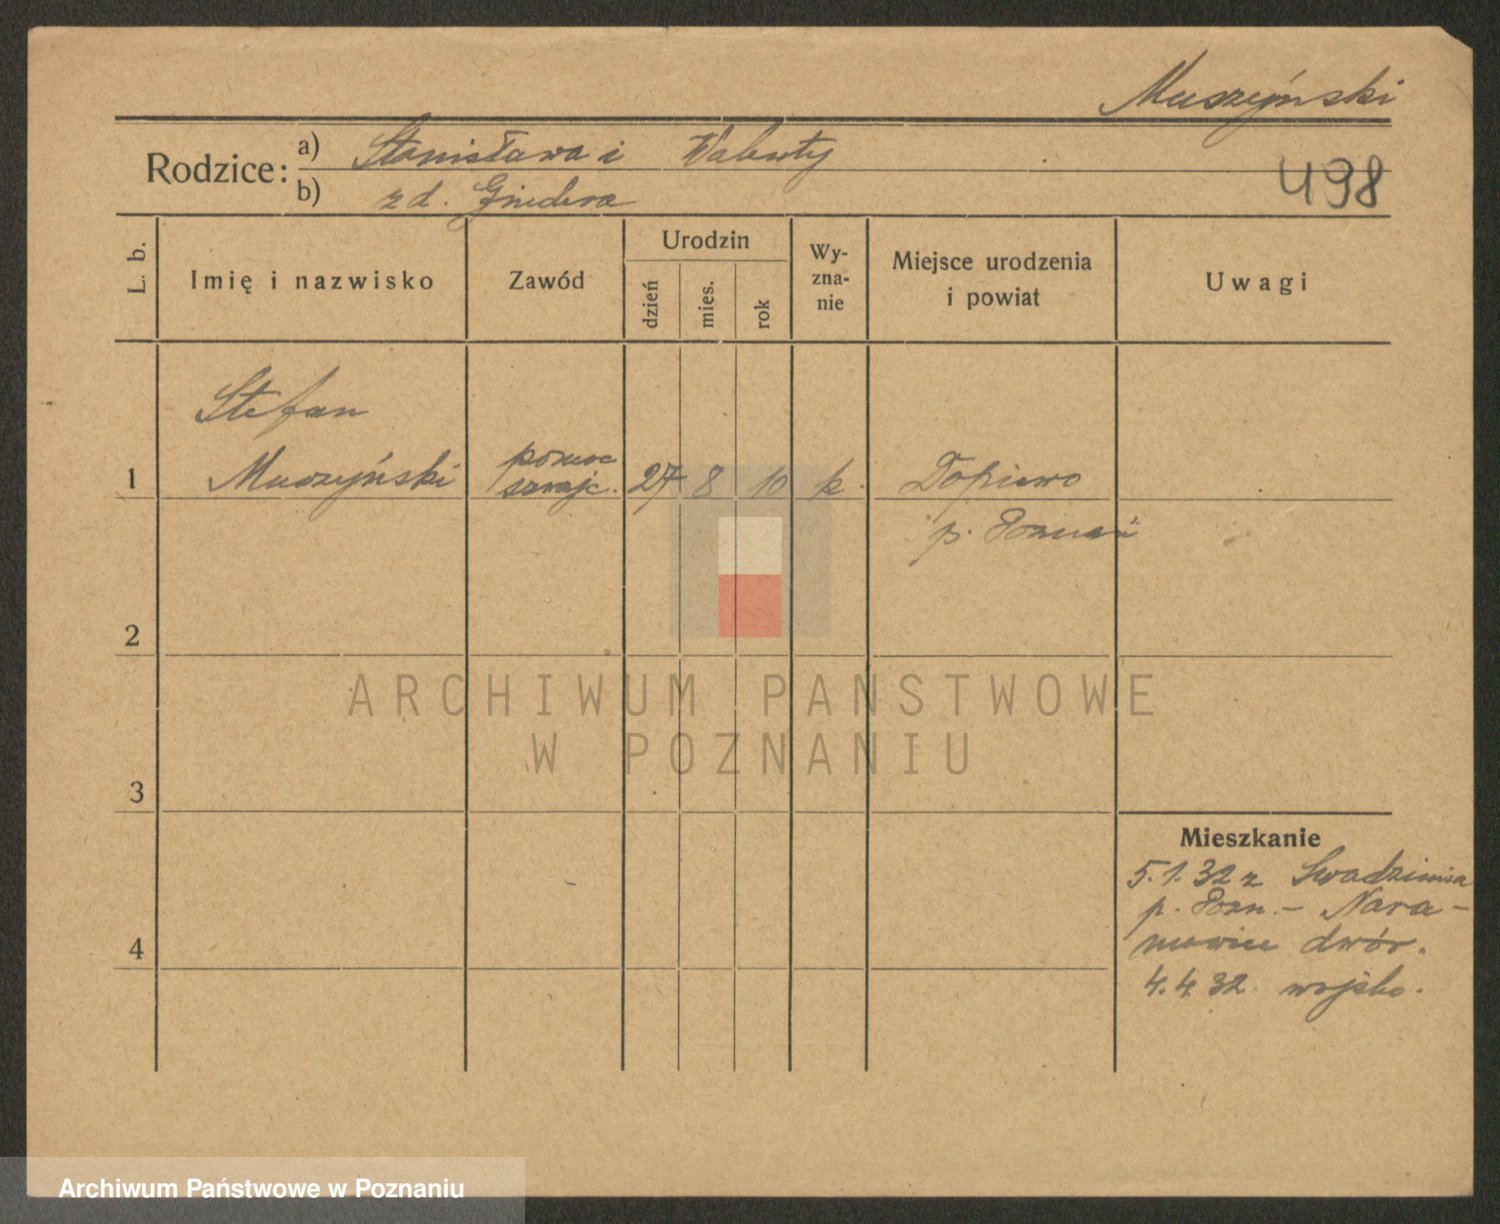 Muszyński
Rodzice: a) Stanisława i Walenty
498
b) z d. Gindera
L. b.
Imię i nazwisko
Zawód
Urodzin
dzień
mies.
rok
Wy-
zna-
nie
Miejsce urodzenia
i powiat
Uwagi
Stefan
1 Muszyński pomoc szwajc. 27 8 10 k. Dopiewo
p. Poznań
2
ARCHIWUM PAŃSTWOWE
W POZNANIU
3
Mieszkanie
5.1.32 z Swadzimia
p. Pozn. – Nara-
mowice dwór.
4
4.4.32. wojsko.
Archiwum Państwowe w Poznaniu